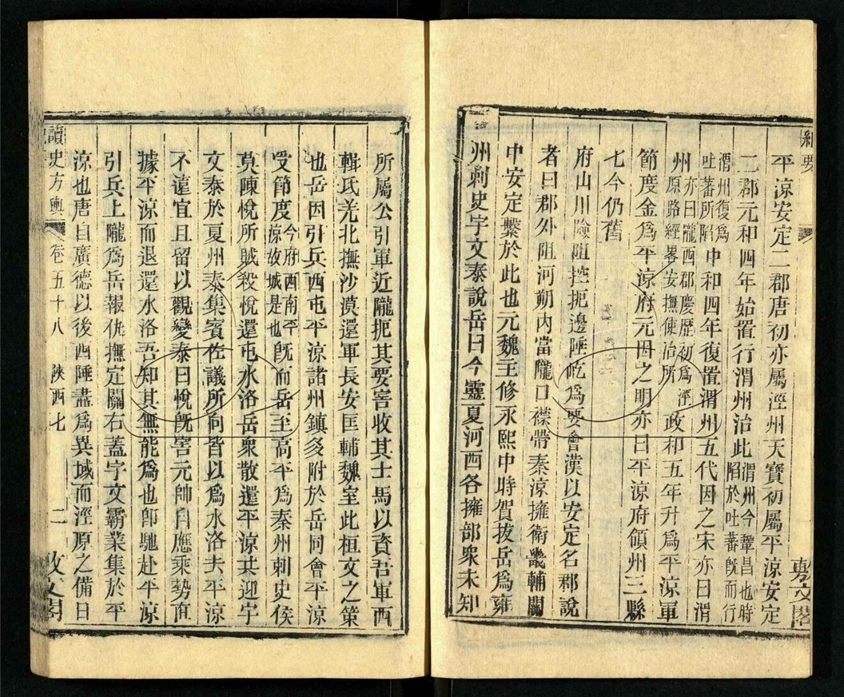 紀要
平涼安定二郡唐初亦屬涇州天寶初屬平涼安定
二郡元和四年始置行渭州治此渭州今鞏昌也時陷於吐蕃既而行
渭州復為吐蕃所陷中和四年復置渭州五代因之宋亦曰渭
州亦曰隴西郡慶歷初為涇原路經畧安撫使治所政和五年升為平涼軍
節度金為平涼府元因之明亦曰平涼府領州三縣
七今仍舊
府山川險阻控扼邊陲屹為要會漢以安定名郡說
者曰郡外阻河朔內當隴口襟帶秦涼擁衛畿輔關
中安定繫於此也元魏主修永熙中時賀拔岳為雍
州刺史宇文泰說岳曰今靈夏河西各擁部眾未知
敷文閣
所屬公引軍近隴扼其要害收其士馬以資吾軍西
輯氐羌北撫沙漠還軍長安匡輔魏室此桓文之策
也岳因引兵西屯平涼諸州鎮多附於岳同會平涼
受節度今府西南平涼故城是也既而岳至高平為秦州刺史侯
莫陳悅所賊殺悅還屯水洛岳眾散還平涼共迎宇
文泰於夏州泰集賓佐議所向皆以為水洛去平涼
不遠宜且留以觀變泰曰悅既害元帥自應乘勢直
據平涼而退還水洛吾知其無能為也即馳赴平涼
引兵上隴為岳報仇撫定關右蓋宇文霸業集於平
涼也唐自廣德以後西陲盡為異域而涇原之備日
讀史方輿
卷五十八
陝西七
二
敷文閣